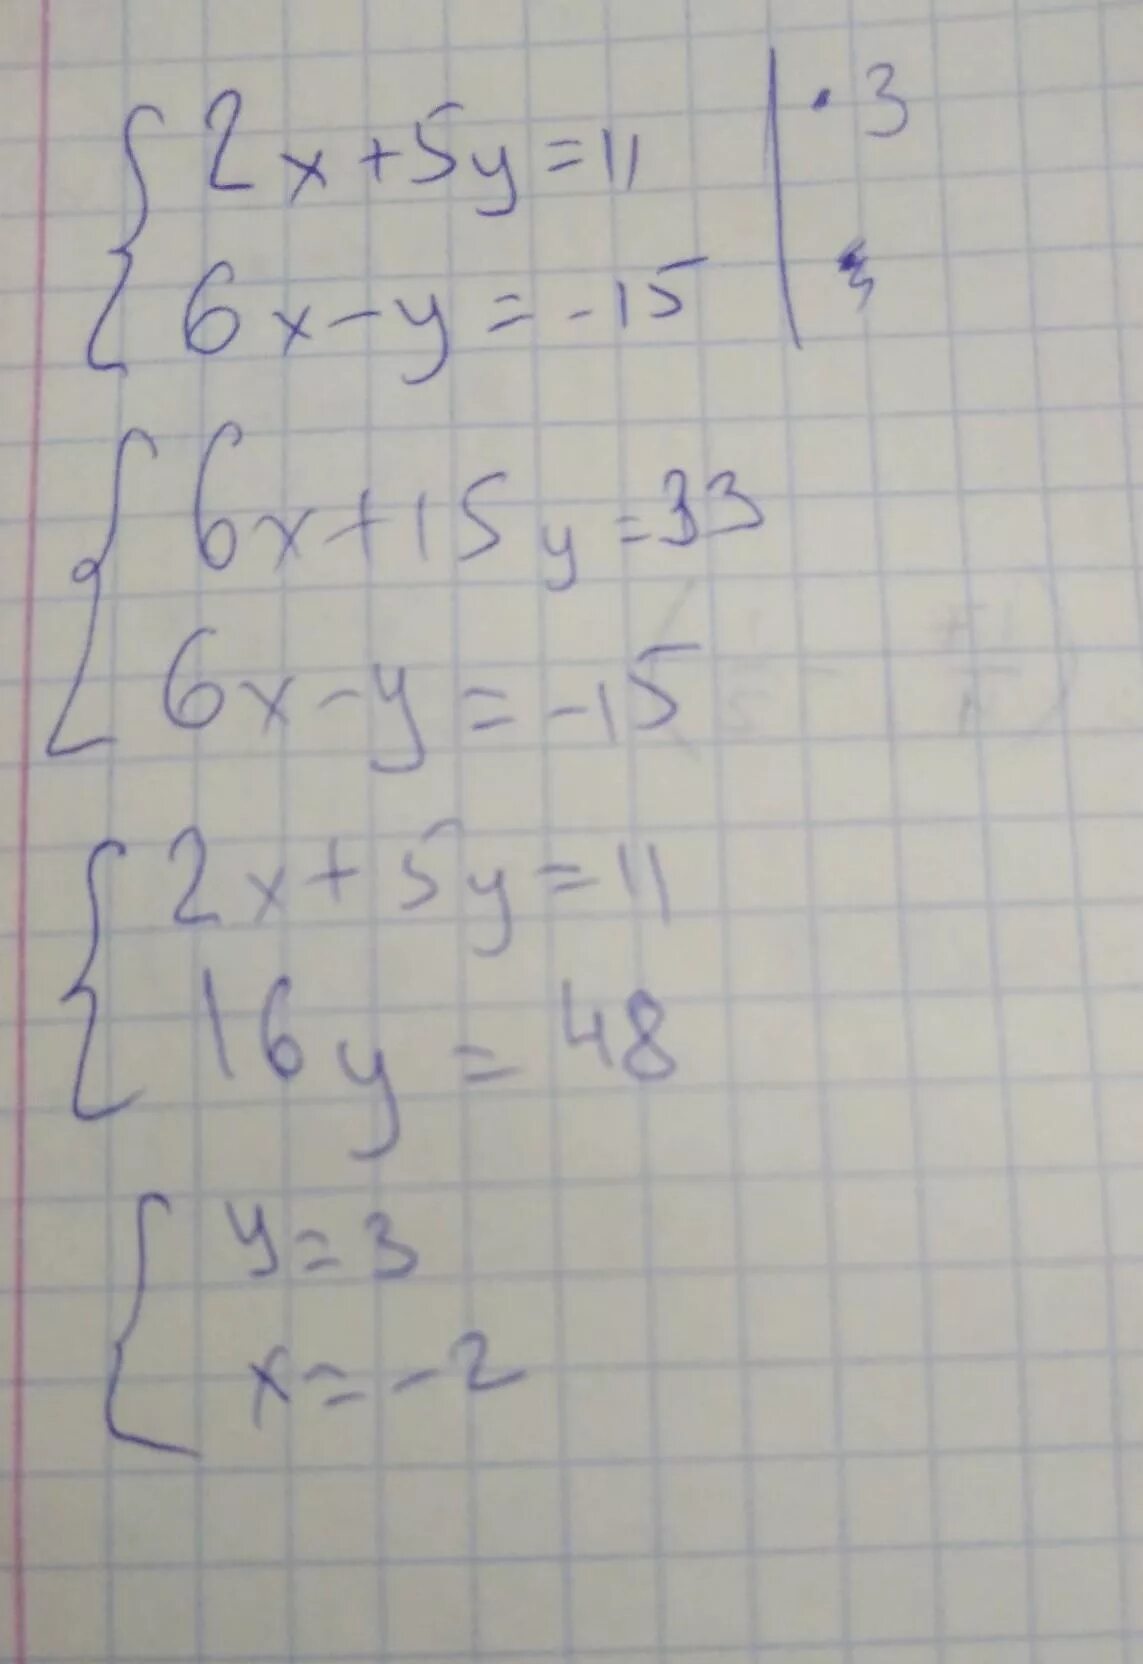 2x+5y=11 | ·3
6x-y=-15
6x+15y=33
6x-y=-15
2x+5y=11
16y=48
y=3
x=-2